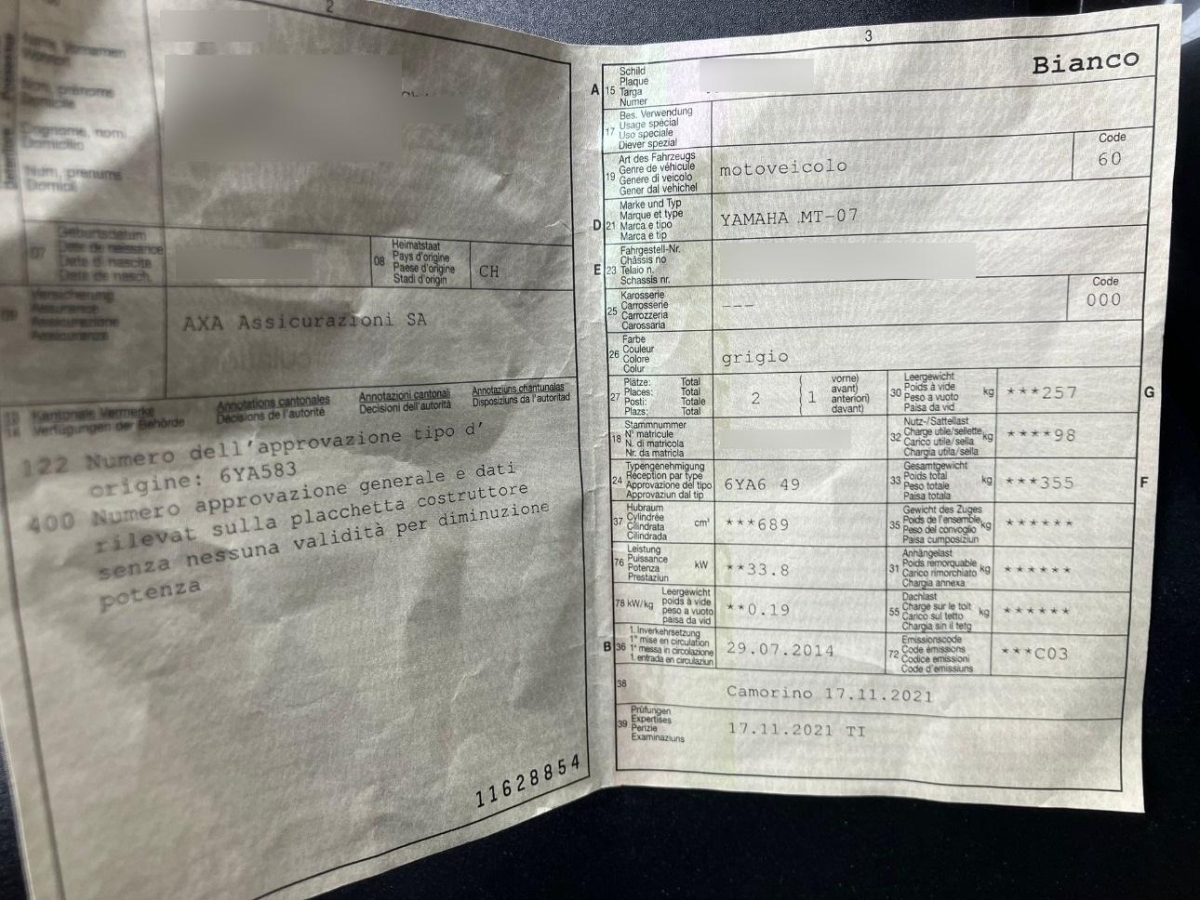 2
Name, Vornamen
Nom, prénoms
Domicile
Cognome, nomi
Domicilio
Num, prenums
Domicil
07
Date de naissance
Date di nascita
Data da nasch.
08
Heimatstaat
Pays d'origine
Paese d'origine
Stadi d'origin
CH
09
Versicherung
Assurance
Assicurazione
Assicuranza
AXA Assicurazioni SA
Kantonale Vermerke
Verfügungen der Behörde
Annotations cantonales
Décisions de l'autorité
Annotazioni cantonali
Decisioni dell'autorità
Annotaziuns chantunalas
Disposiziuns da l'autoritad
122 Numero dell'approvazione tipo d'
origine: 6YA583
400 Numero approvazione generale e dati
rilevat sulla placchetta costruttore
senza nessuna validità per diminuzione
potenza
11628854
3
Bianco
A 15
Schild
Plaque
Targa
Numer
17
Bes. Verwendung
Usage spécial
Uso speciale
Diever spezial
19
Art des Fahrzeugs
Genre de véhicule
Genere di veicolo
Gener dal vehichel
motoveicolo
Code
60
D 21
Marke und Typ
Marque et type
Marca e tipo
Marca e tip
YAMAHA MT-07
E 23
Fahrgestell-Nr.
Châssis no
Telaio n.
Schassis nr.
25
Karosserie
Carrosserie
Carrozzeria
Carossaria
---
Code
000
26
Farbe
Couleur
Colore
Colur
grigio
27
Plätze: Total
Places: Total
Posti: Totale
Plazs: Total
2
1
vorne)
avant)
anteriori)
davant)
30
Leergewicht
Poids à vide
Peso a vuoto
Paisa da vid
kg
***257
G
18
Stammnummer
N° matricule
N. di matricola
Nr. da matricla
32
Nutz-/Sattellast
Charge utile/sellette
Carico utile/sella
Chargia utila/sella
kg
****98
24
Typengenehmigung
Réception par type
Approvazione del tipo
Approvaziun dal tip
6YA6 49
33
Gesamtgewicht
Poids total
Peso totale
Paisa totala
kg
***355
F
37
Hubraum
Cylindrée
Cilindrata
Cilindrada
cm³
***689
35
Gewicht des Zuges
Poids de l'ensemble
Peso del convoglio
Paisa cumposiziun
kg
******
76
Leistung
Puissance
Potenza
Prestaziun
kW
**33.8
31
Anhängelast
Poids remorquable
Carico rimorchiato
Chargia annexa
kg
******
78 kW/kg
Leergewicht
poids à vide
peso a vuoto
paisa da vid
**0.19
55
Dachlast
Charge sur le toit
Carico sul tetto
Chargia sin il tetg
kg
******
B 36
1. Inverkehrsetzung
1re mise en circulation
1a messa in circolazione
1. entrada en circulaziun
29.07.2014
72
Emissionscode
Code émissions
Codice emissioni
Code d'emissiuns
***C03
38
Camorino 17.11.2021
39
Prüfungen
Expertises
Perizie
Examinaziuns
17.11.2021 TI